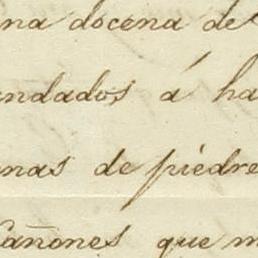 na docena de
ndados á ha
nas de piedre
Cañones que m